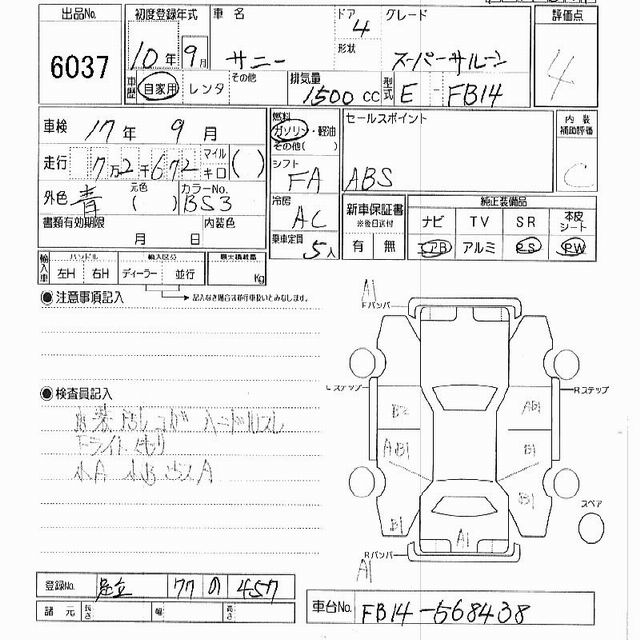 出品No. 6037
初度登録年式 10年 9月
車歴 自家用 レンタ その他
車名 サニー
ドア 4
形状
グレード スーパーサルーン
排気量 1500 cc
型式 E - FB14
評価点 4
車検 17年 9月
走行 7万2千672 マイル キロ ( )
外色 青 元色 ( ) カラーNo. BS3
書類有効期限 月 日 内装色
燃料 ガソリン・軽油 その他( )
シフト FA
冷房 AC
乗車定員 5人
セールスポイント
ABS
内装補助評価 C
新車保証書 ※後日送付 有 無
純正装備品
ナビ TV SR 本皮シート
エアB アルミ PS PW
輸入車 ハンドル 左H 右H 輸入区分 ディーラー 並行 最大積載量 Kg
記入なき場合は並行車扱いとみなします。
◉注意事項記入
◉検査員記入
A1
Fバンパ
Lステップ Rステップ
B2 AB1
AB1 B1
B1 B1
A1
スペア
Rバンパ
A1
登録No. 足立 77 の 457
諸元 長さ 幅 高さ
車台No. FB14-568438